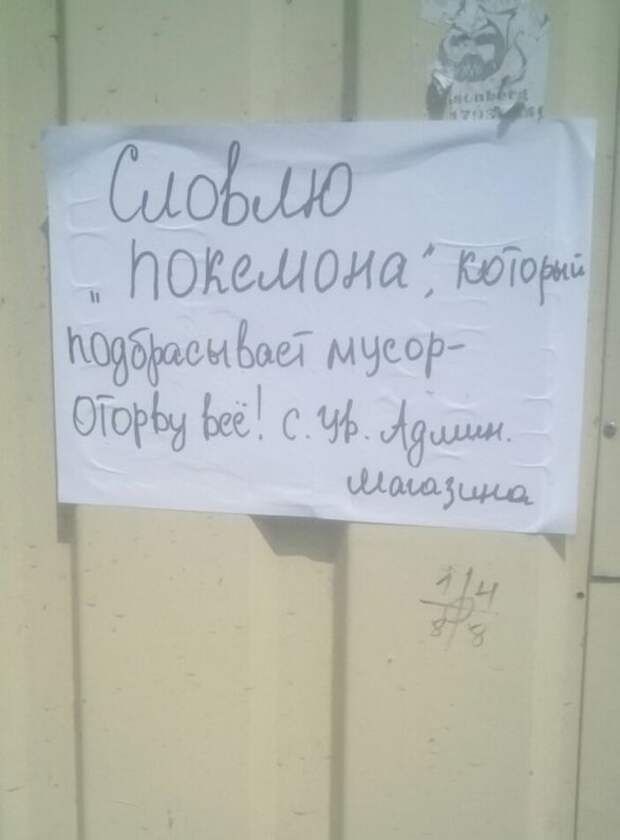 Словлю
„покемона“, который
подбрасывает мусор-
оторву всё! с. ур. Админ.
магазина
1 4
8 8